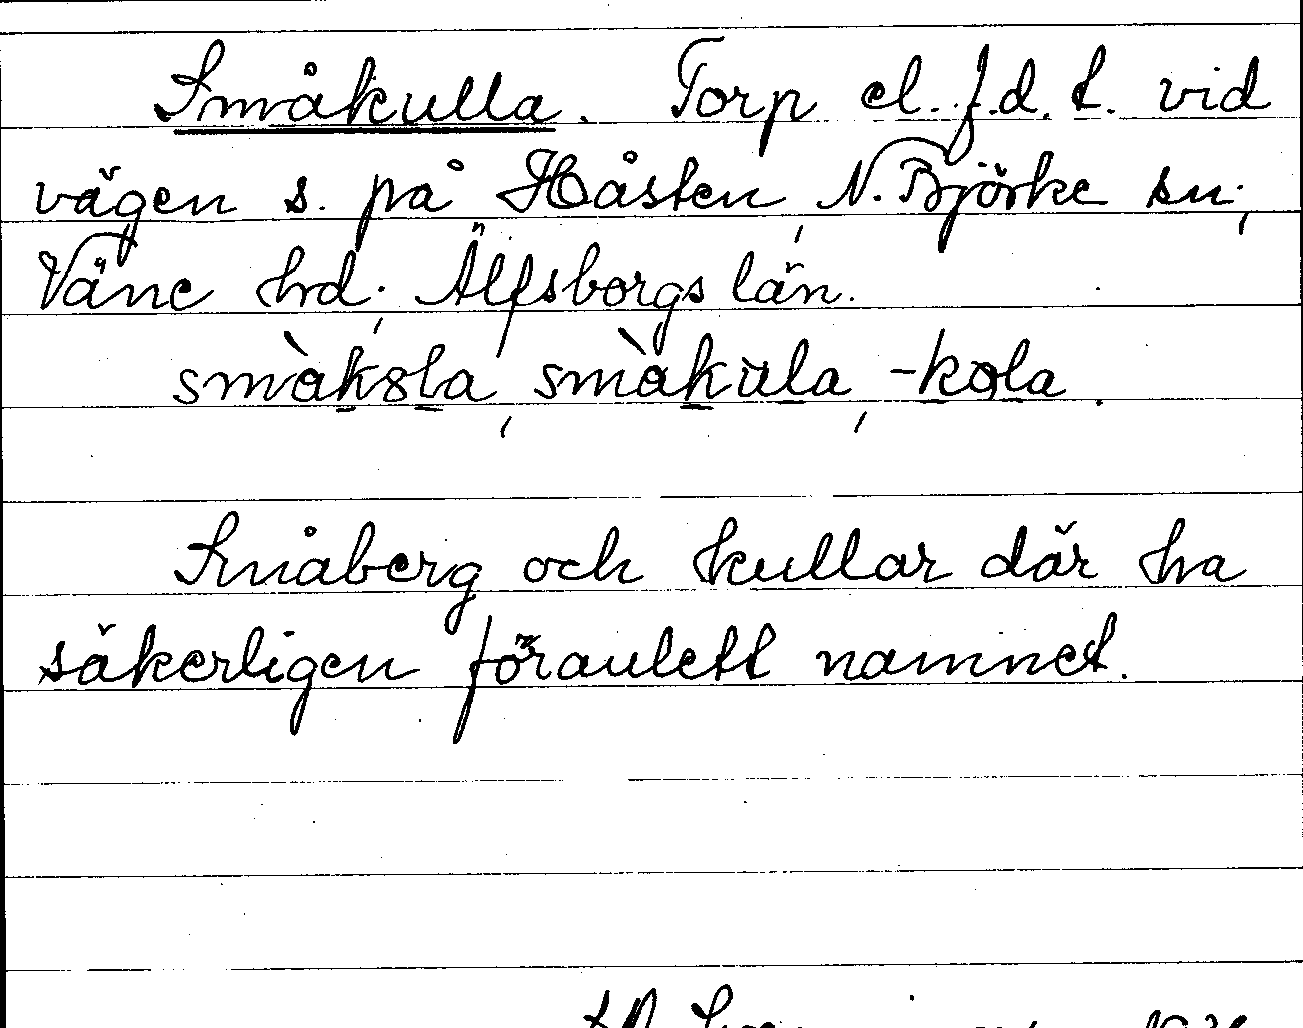 Småkulla. Torp el. f.d. t. vid
vägen s. på Håsten, N. Björke sn,
Väne hd, Älfsborgs län.
smàkꝏla, smàkùla, -kola.
Småberg och kullar där ha
säkerligen föranlett namnet.